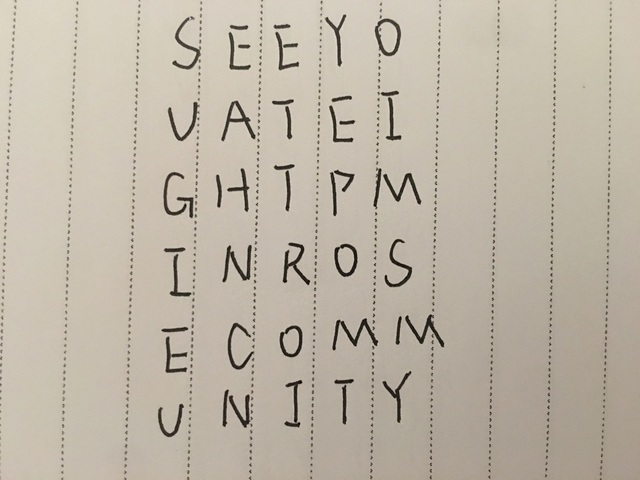 S E E Y O
U A T E I
G H T P M
I N R O S
E C O M M
U N I T Y